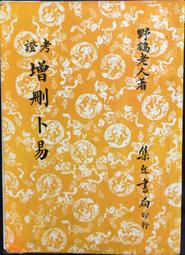 野鶴老人著
考證
增刪卜易
集文書局印行